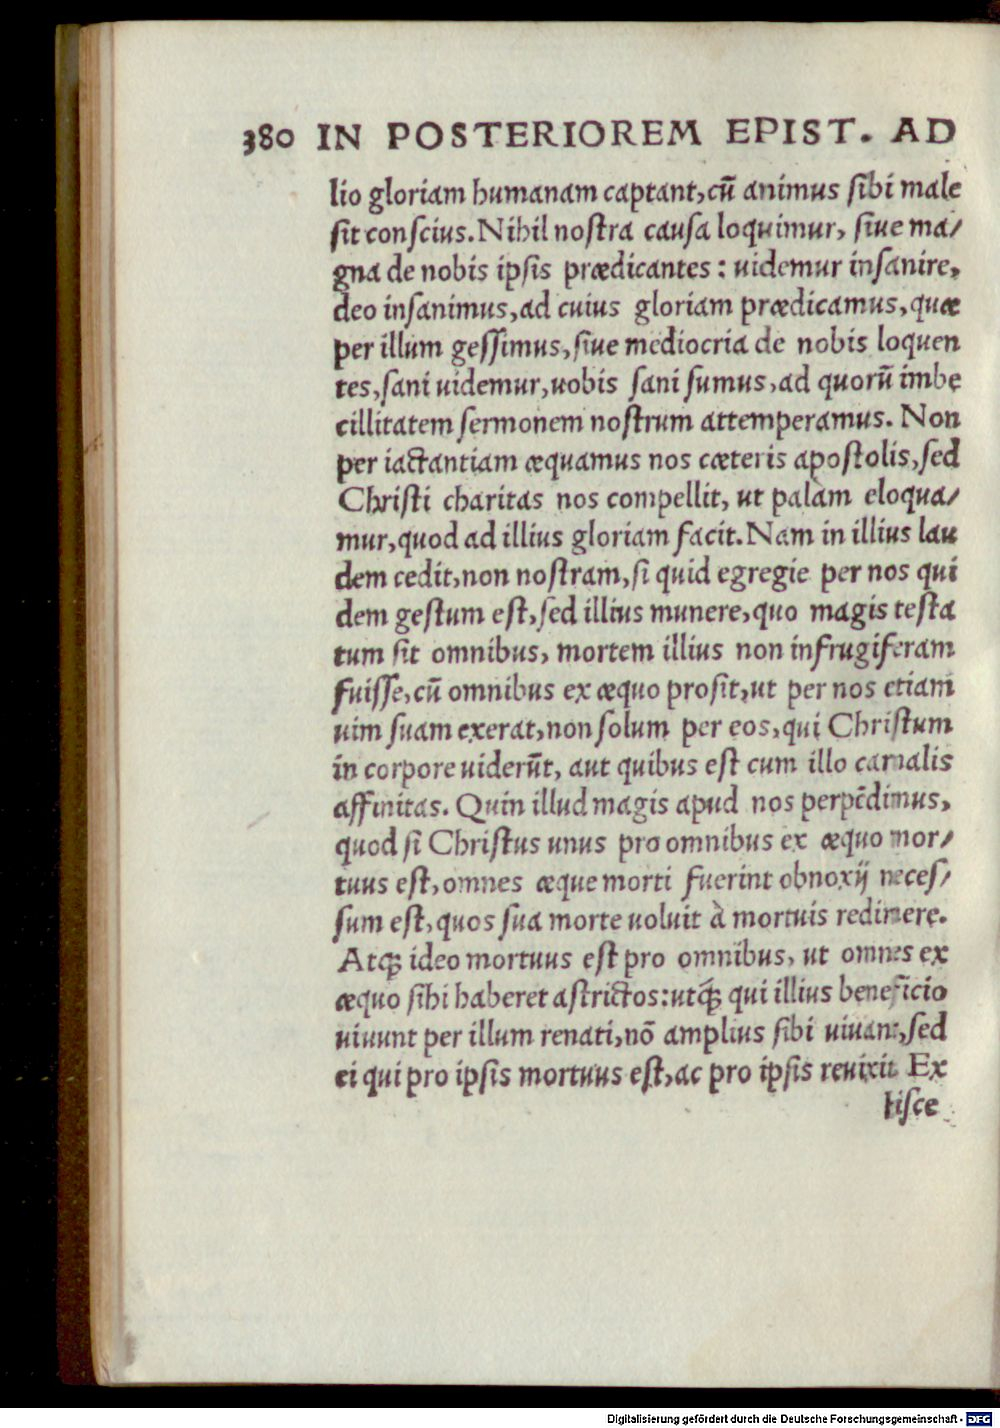 380 IN POSTERIOREM EPIST. AD
lio gloriam humanam captant, cū animus sibi male
sit conscius. Nihil nostra causa loquimur, siue ma/
gna de nobis ipsis prædicantes : uidemur insanire,
deo insanimus, ad cuius gloriam prædicamus, quæ
per illum gessimus, siue mediocria de nobis loquen
tes, sani uidemur, uobis sani sumus, ad quorū imbe
cillitatem sermonem nostrum attemperamus. Non
per iactantiam æquamus nos cæteris apostolis, sed
Christi charitas nos compellit, ut palàm eloqua/
mur, quod ad illius gloriam facit. Nam in illius lau
dem cedit, non nostram, si quid egregie per nos qui
dem gestum est, sed illius munere, quo magis testa
tum sit omnibus, mortem illius non infrugiferam
fuisse, cū omnibus ex æquo prosit, ut per nos etiam
uim suam exerat, non solum per eos, qui Christum
in corpore uiderūt, aut quibus est cum illo carnalis
affinitas. Quin illud magis apud nos perpēdimus,
quod si Christus unus pro omnibus ex æquo mor/
tuus est, omnes æque morti fuerint obnoxij neces/
sum est, quos sua morte uoluit à mortuis redimere.
Atqꝫ ideo mortuus est pro omnibus, ut omnes ex
æquo sibi haberet astrictos: utqꝫ́ qui illius beneficio
uiuunt per illum renati, nō amplius sibi uiuant, sed
ei qui pro ipsis mortuus est, ac pro ipsis reuixit. Ex
hisce
Digitalisierung gefördert durch die Deutsche Forschungsgemeinschaft - DFG